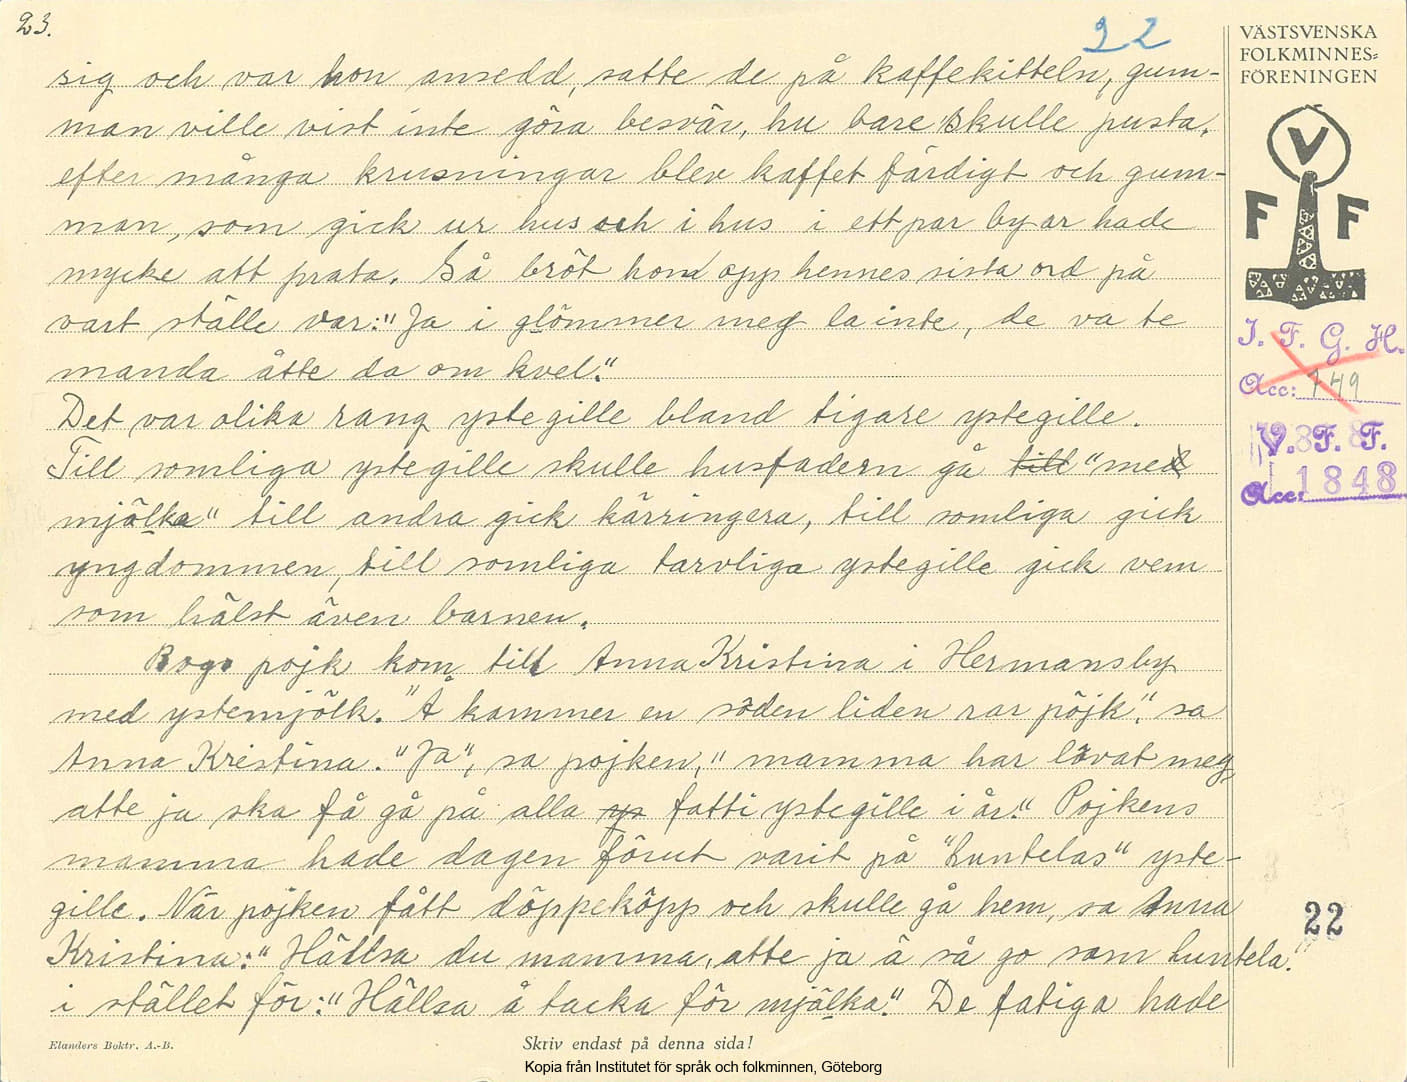 23.
22
VÄSTSVENSKA
FOLKMINNES=
FÖRENINGEN
V
F F
I. F. G. H.
Acc: 749
V. F. F.
Acc: 1848
sig och var hon ansedd, satte de på kaffekitteln, gum-
man ville vist inte göra besvär, hu bare skulle pusta.
efter många krusningar blev kaffet färdigt och gum-
man, som gick ur hus och i hus i ett par byar hade
mycke att prata. Så bröt hon opp hennes sista ord på
vart ställe var: "Ja i glömmer meg la inte, de va te
manda åtte da om kvel."
Det var olika rang ystegille bland tigare ystegille.
Till somliga ystegille skulle husfadern gå till "me
mjölka" till andra gick kärringera, till somliga gick
yngdommen, till somliga tarvliga ystegille gick vem
som hälst även barnen.
pojk kom till Anna Kristina i Hermansby
med ystemjölk. "Å kammer en söden liden rar pöjk". sa
Anna Kristina. "Ja", sa pojken, "mamma har lovat meg,
atte ja ska få gå på alla ys fatti ystegille i år." Pojkens
mamma hade dagen förut varit på "huntelas" yste-
gille. När pojken fått döppeköpp och skulle gå hem, sa Anna
Kristina: "Hällsa du mamma, atte ja ä så go som huntela."
i stället för: "Hällsa å tacka för mjölka." De fatiga hade
22
Elanders Boktr. A.-B.
Skriv endast på denna sida!
Kopia från Institutet för språk och folkminnen, Göteborg